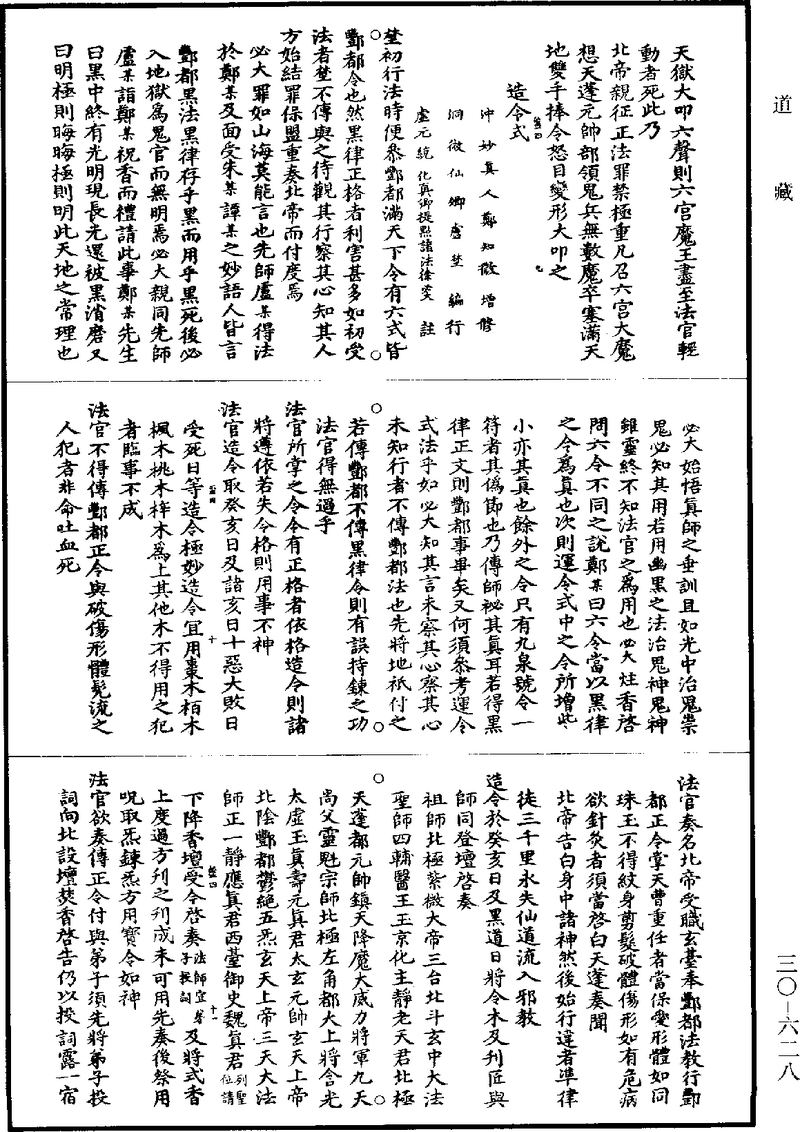 道藏
天獄大叩六聲則六宮魔王盡至法官輕
動者死此乃
北帝親征正法罪禁極重凡召六宮大魔
想天蓬元帥部領鬼兵無數魔卒塞滿天
地雙手捧令怒目變形大叩之
造令式
沖妙真人鄭知微增修
洞微仙卿盧埜編行
盧元統化真卿提點諸法徐必大註
埜初行法時便叅酆都滿天下令有六式皆
酆都令也然黑律正格者利害甚多如初受
法者埜不傳與之待觀其行察其心知其人
方始結罪保盟重奏北帝而付度焉
必大罪如山海莫能言也先師盧某得法
於鄭某及面受朱某譚某之妙語人皆言
酆都黑法黑律存乎黑而用乎黑死後必
入地獄為鬼官而無明焉必大親同先師
盧某詣鄭某祝香而禮請此事鄭某先生
曰黑中終有光明現長先還被黑消磨又
曰明極則晦晦極則明此天地之常理也
必大始悟真師之垂訓且如光中治鬼祟
鬼必知其用若用幽黑之法治鬼神鬼神
雖靈終不知法官之為用也必大炷香啓
問六令不同之說鄭某曰六令當以黑律
之令為真也次則運令式中之令所增些
小亦其真也餘外之令只有九泉號令一
符者其僞節也乃傳師祕其真耳若得黑
律正文則酆都事畢矣又何須叅考運令
式法乎如必大知其言未察其心察其心
未知行者不傳酆都法也先將地祇付之
若傳酆都不傳黑律令則有誤持鍊之功
法官得無過乎
法官所掌之令令有正格者依格造令則諸
將遵依若失令格則用事不神
法官造令取癸亥日及諸亥日十惡大敗日
受死日等造令極妙造令宜用棗木栢木
楓木桃木梓木為上其他木不得用之犯
者臨事不成
法官不得傳酆都正令與破傷形體髡流之
人犯者非命吐血死
法官奏名北帝受職玄臺奉酆都法教行酆
都正令掌天曹重任者當保愛形體如同
珠玉不得紋身剪髮破體傷形如有危病
欲針灸者須當啓白天蓬奏聞
北帝告白身中諸神然後始行違者準律
徒三千里永失仙道流入邪教
造令於癸亥日及黑道日將令木及刋匠與
師同登壇啓奏
祖師北極紫微大帝三台北斗玄中大法
聖師四輔醫王玉京化主靜老天君北極
天蓬都元帥鎮天降魔大威力將軍九天
尚父靈尅宗師北極左角都大上將含光
太虛玉真壽元真君太玄元帥玄天上帝
北陰酆都鬱絕五炁玄天上帝三天大法
師正一靜應真君西臺御史魏真君列聖位請
下降香壇受令啓奏法師宣弟子投詞及將式香
上度過方刋之刋成未可用先奏後祭用
呪取炁鍊炁方用寶令如神
法官欲奏傳正令付與弟子須先將弟子投
詞向北設壇焚香啓告仍以投詞露一宿
三〇—六二八